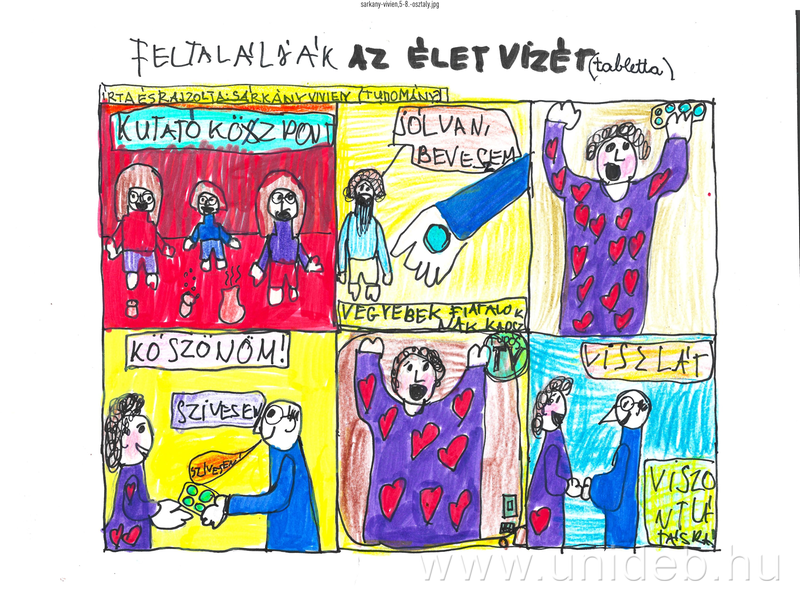 sarkany-vivien,5-8.-osztaly.jpg
FELTALÁLJÁK AZ ÉLET VIZÉT (tabletta)
ÍRTA ÉS RAJZOLTA: SÁRKÁNY VIVIEN (TUDOMÁNY)
KUTATÓ KÖSZPONT
JÓLVAN!
BEVESZEM
VEGYEBEK FIATALOK
NAK
KÖSZÖNÖM!
SZÍVESEN
SZÍVESEN!
TV
VISZLÁT
VISZO
NTLÁ
TÁSRA!
www.unideb.hu